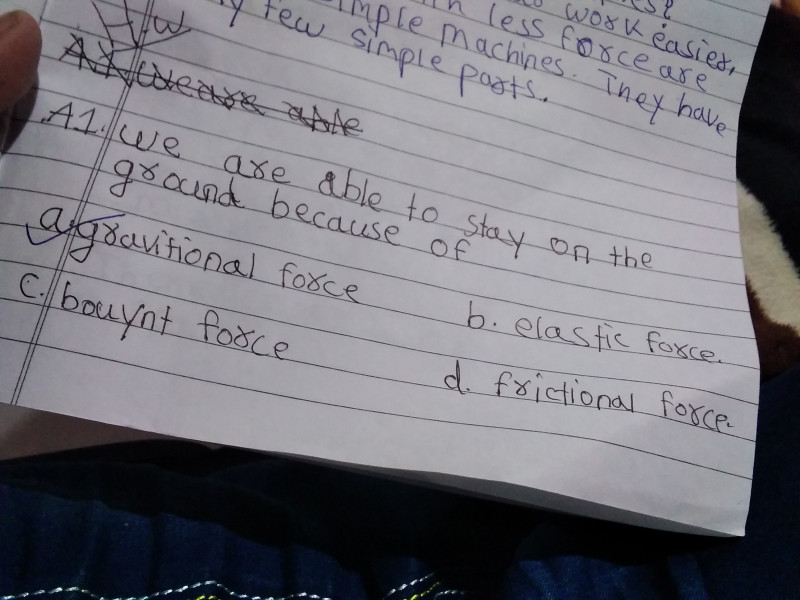 work easier,
simple machines. They have
few simple parts.
less force are
A1. We are able to stay on the
ground because of
a. gravitional force
b. elastic force.
c. bouynt force
d. frictional force.